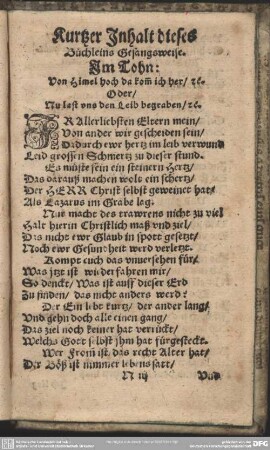 Kurtzer Inhalt dieses
Büchleins Gesangsweise.
Im Tohn:
Von Himel hoch da kom̃ ich her/ ꝛc.
Oder/
Nu last vns den Leib begraben/ ꝛc.
IR Allerliebsten Eltern mein/
Von ander wir gescheiden sein/
Dadurch ewr hertz im leib verwund
Leid grossen Schmertz zu dieser stund.
Es müste sein ein steinern Hertz/
Das darauß machen wolt ein schertz/
Der HERR Christ selbst geweinet hat/
Als Lazarus im Grabe lag.
Nur macht des trawrens nicht zu viel
Halt hierin Christlich maß vnd ziel/
Das nicht ewr Glaub in spott gesetzt/
Noch ewr Gesundheit werd verletzt.
Kompt euch das vnuersehen für/
Was jtzt ist widerfahren mir/
So denckt/ Was ist auff dieser Erd
Zu finden/ das nicht anders werd?
Der Ein lebt kurtz/ der ander lang/
Vnd gehn doch alle einen gang/
Das ziel noch keiner hat verrückt/
Welchs Gott selbst jhm hat fürgesteckt.
Wer From̃ ist/ das recht Alter hat/
Der Böß ist nimmer lebens satt/
N iij
Vnd